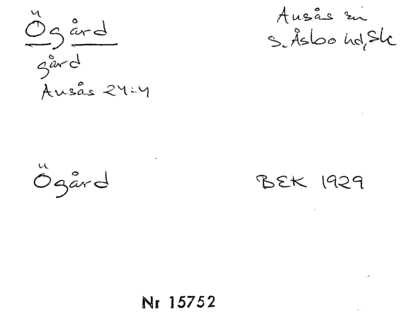 Ögård
Ausås sn
S. Åsbo hd, Sk
gård
Ausås 24:4
Ögård
BEK 1929
Nr 15752